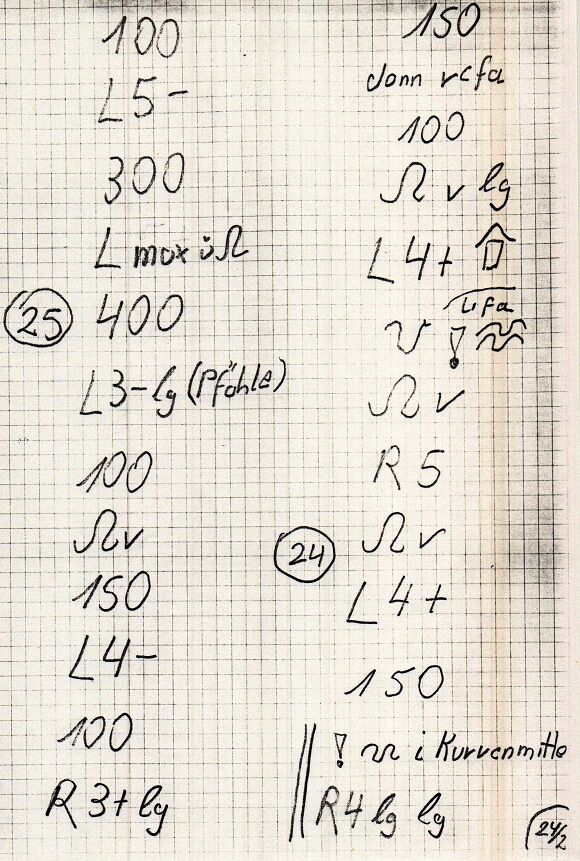 100
L5-
300
L max ü Ω
25 400
L3- lg (Pfähle)
100
Ω v
150
L4-
100
R3+ lg
150
dann refa
100
Ω v lg
L4+
Lifa
!
Ω v
R5
24 Ω v
L4+
150
! i Kurvenmitte
R4 lg lg
24/2